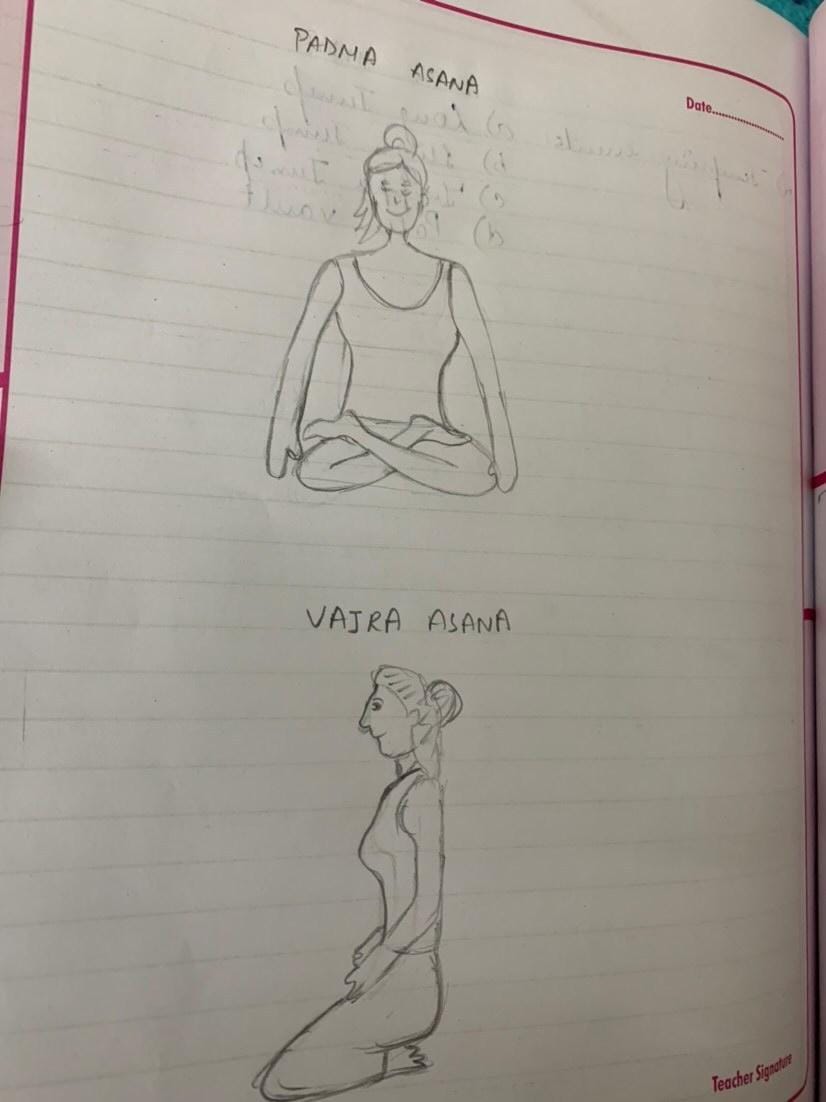 PADMA ASANA
Date
VAJRA ASANA
Teacher Signature